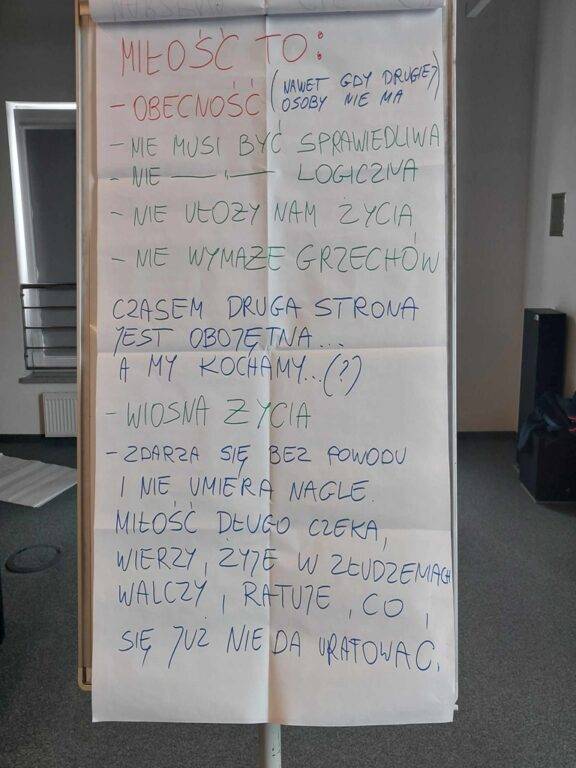 MIŁOŚĆ TO:
- OBECNOŚĆ (NAWET GDY DRUGIEJ
OSOBY NIE MA)
- NIE MUSI BYĆ SPRAWIEDLIWA
- NIE —— " —— LOGICZNA
- NIE UŁOŻY NAM ŻYCIA
- NIE WYMAŻE GRZECHÓW
CZASEM DRUGA STRONA
JEST OBOJĘTNA...
A MY KOCHAMY...(?)
- WIOSNA ŻYCIA
- ZDARZA SIĘ BEZ POWODU
I NIE UMIERA NAGLE.
MIŁOŚĆ DŁUGO CZEKA,
WIERZY, ŻYJE W ZŁUDZENIACH
WALCZY, RATUJE, CO,
SIĘ JUŻ NIE DA URATOWAĆ.